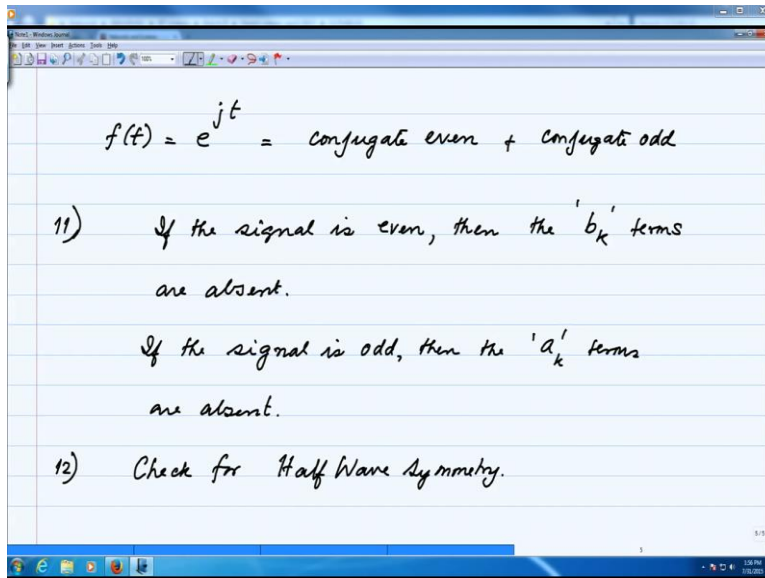 Note1 - Windows Journal
File Edit View Insert Actions Tools Help
100%
f(t) = e^{jt} = conjugate even + conjugate odd
11) If the signal is even, then the 'b_k' terms
are absent.
If the signal is odd, then the 'a_k' terms
are absent.
12) Check for Half Wave Symmetry.
5/5
5
3:56 PM
7/31/2015